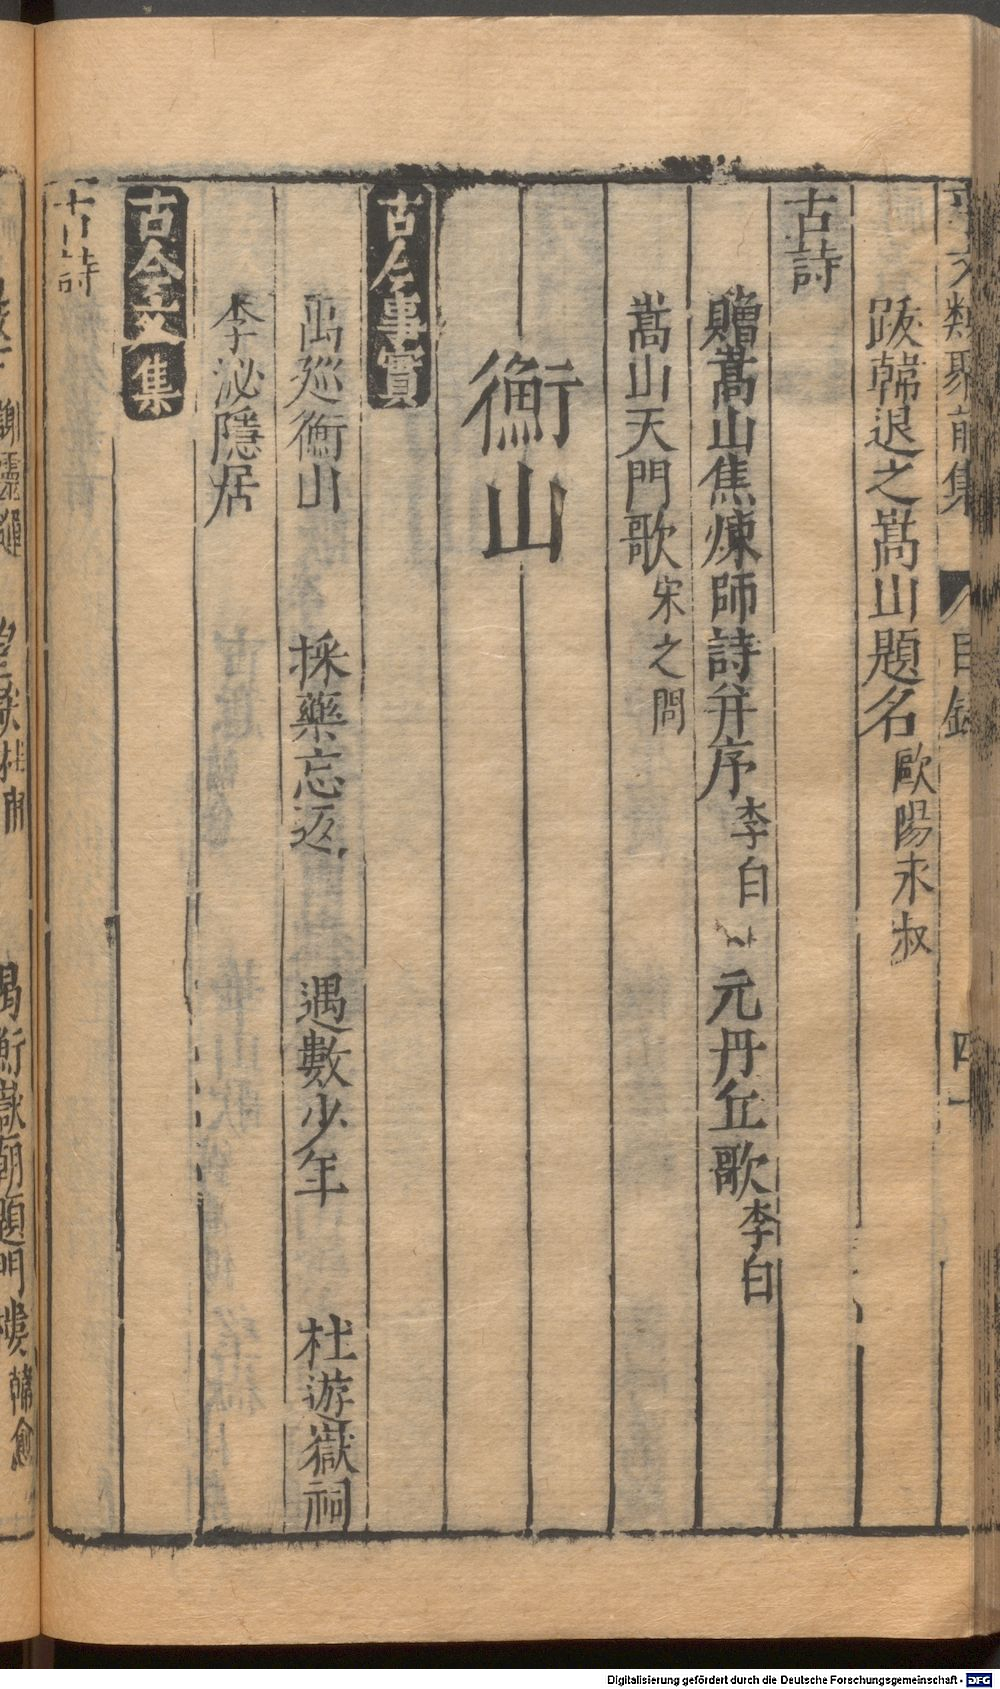 事文類聚前集 目錄 四一
跋韓退之嵩山題名 歐陽永叔
古詩
贈嵩山焦煉師詩并序 李白 元丹丘歌 李白
嵩山天門歌 宋之問
衡山
古今事實
禹廵衡山 採藥忘返 遇數少年 杜遊嶽祠
李泌隱居
古今文集
古詩
謝靈運 謁衡嶽廟題門樓 韓愈
Digitalisierung gefördert durch die Deutsche Forschungsgemeinschaft - DFG